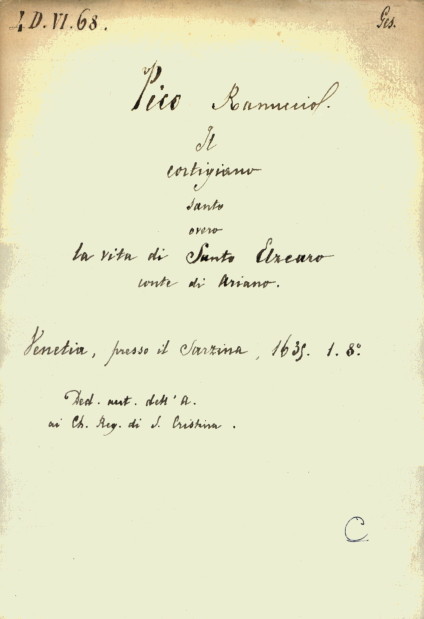 4 D. VI. 68.
Ges.
Pico Ranucciol.
Il
cortigiano
santo
overo
la vita di Santo Elzearo
conte di Ariano.
Venetia, presso il Sarzina, 1635. 1. 8°.
Ded. aut. dell'A.
ai Ch. Reg. di S. Cristina.
C.